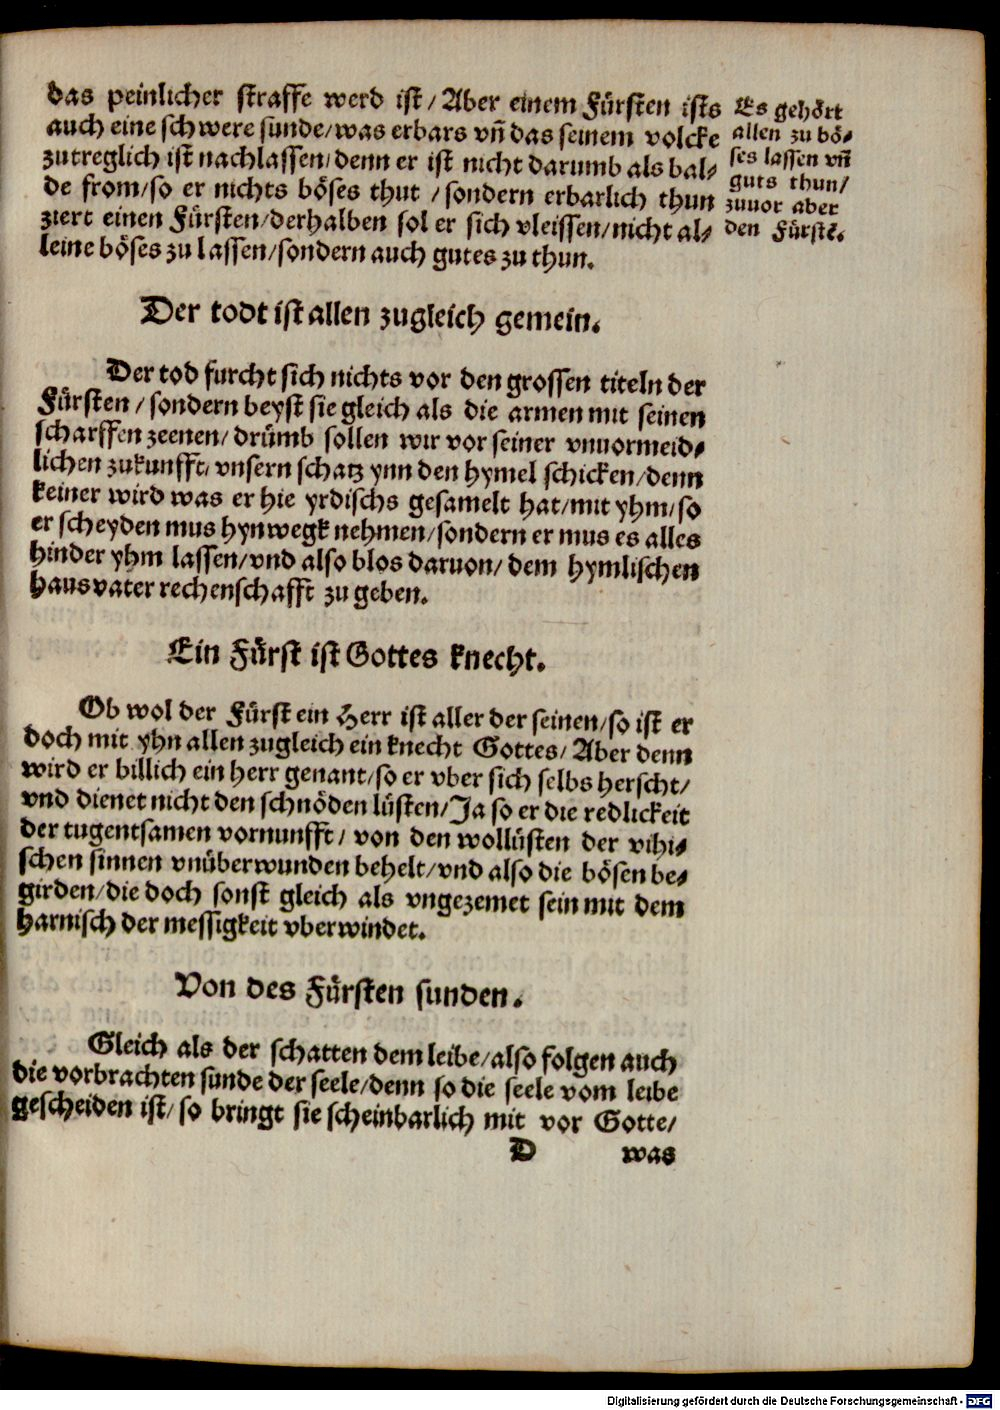 das peinlicher straffe werd ist / Aber einem Fürsten ists
auch eine schwere sunde/was erbars vn̄ das seinem volcke
zutreglich ist nachlassen/denn er ist nicht darumb als bal⸗
de from/so er nichts böses thut / sondern erbarlich thun
ziert einen Fürsten/derhalben sol er sich vleissen/nicht al⸗
leine böses zu lassen/sondern auch gutes zu thun.
Es gehört
allen zu bö⸗
ses lassen vn̄
guts thun/
zuuor aber
den Fürstē.
Der todt ist allen zugleich gemein.
Der tod furcht sich nichts vor den grossen titeln der
Fürsten / sondern beyst sie gleich als die armen mit seinen
scharffen zeenen/ drümb sollen wir vor seiner vnuormeid⸗
lichen zukunfft/ vnsern schatz ynn den hymel schicken/denn
keiner wird was er hie yrdischs gesamelt hat/mit yhm/so
er scheyden mus hynwegk nehmen/sondern er mus es alles
hinder yhm lassen/vnd also blos daruon/ dem hymlischen
hausvater rechenschafft zu geben.
Ein Fürst ist Gottes knecht.
Ob wol der Fürst ein Herr ist aller der seinen/so ist er
doch mit yhn allen zugleich ein knecht Gottes/ Aber denn
wird er billich ein herr genant/so er vber sich selbs herscht/
vnd dienet nicht den schnöden lüsten/Ja so er die redlickeit
der tugentsamen vornunfft/ von den wollüsten der vihi⸗
schen sinnen vnüberwunden behelt/vnd also die bösen be⸗
girden/die doch sonst gleich als vngezemet sein mit dem
harnisch der messigkeit vberwindet.
Von des Fürsten sunden.
Gleich als der schatten dem leibe/also folgen auch
die vorbrachten sunde der seele/denn so die seele vom leibe
gescheiden ist/ so bringt sie scheinbarlich mit vor Gotte/
D was
Digitalisierung gefördert durch die Deutsche Forschungsgemeinschaft - DFG